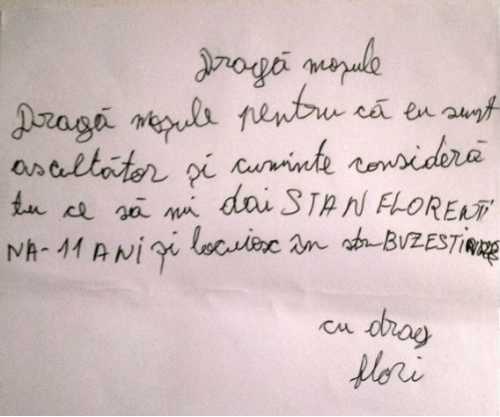 Dragă moșule
Dragă moșule pentru că eu sunt
ascultător și cuminte consideră
tu ce să mi dai STAN FLORENTI
NA-11 ANI și locuiesc în str BUZESTI
cu drag
flori